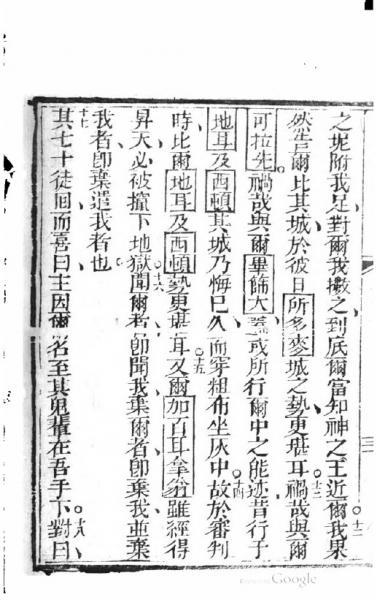 之坭附我足對爾我擻之到底爾當知神之王近爾十二我果
然告爾比其城於彼日所多麥城之勢更堪耳十三禍哉與爾
可拉先禍哉與爾畢篩大蓋或所行爾中之能迹昔行于
地耳及西頓其城乃悔已久而穿粗布坐灰中十四故於審判
時比爾地耳及西頓勢更堪耳十五又爾加百耳拿翁雖經得
昇天必被撞下地獄十六聞爾者卽聞我棄爾者卽棄我並棄
我者卽棄遣我者也
十七其七十徒囘而喜曰主因爾名至其鬼輩在吾手下十八對曰
Google